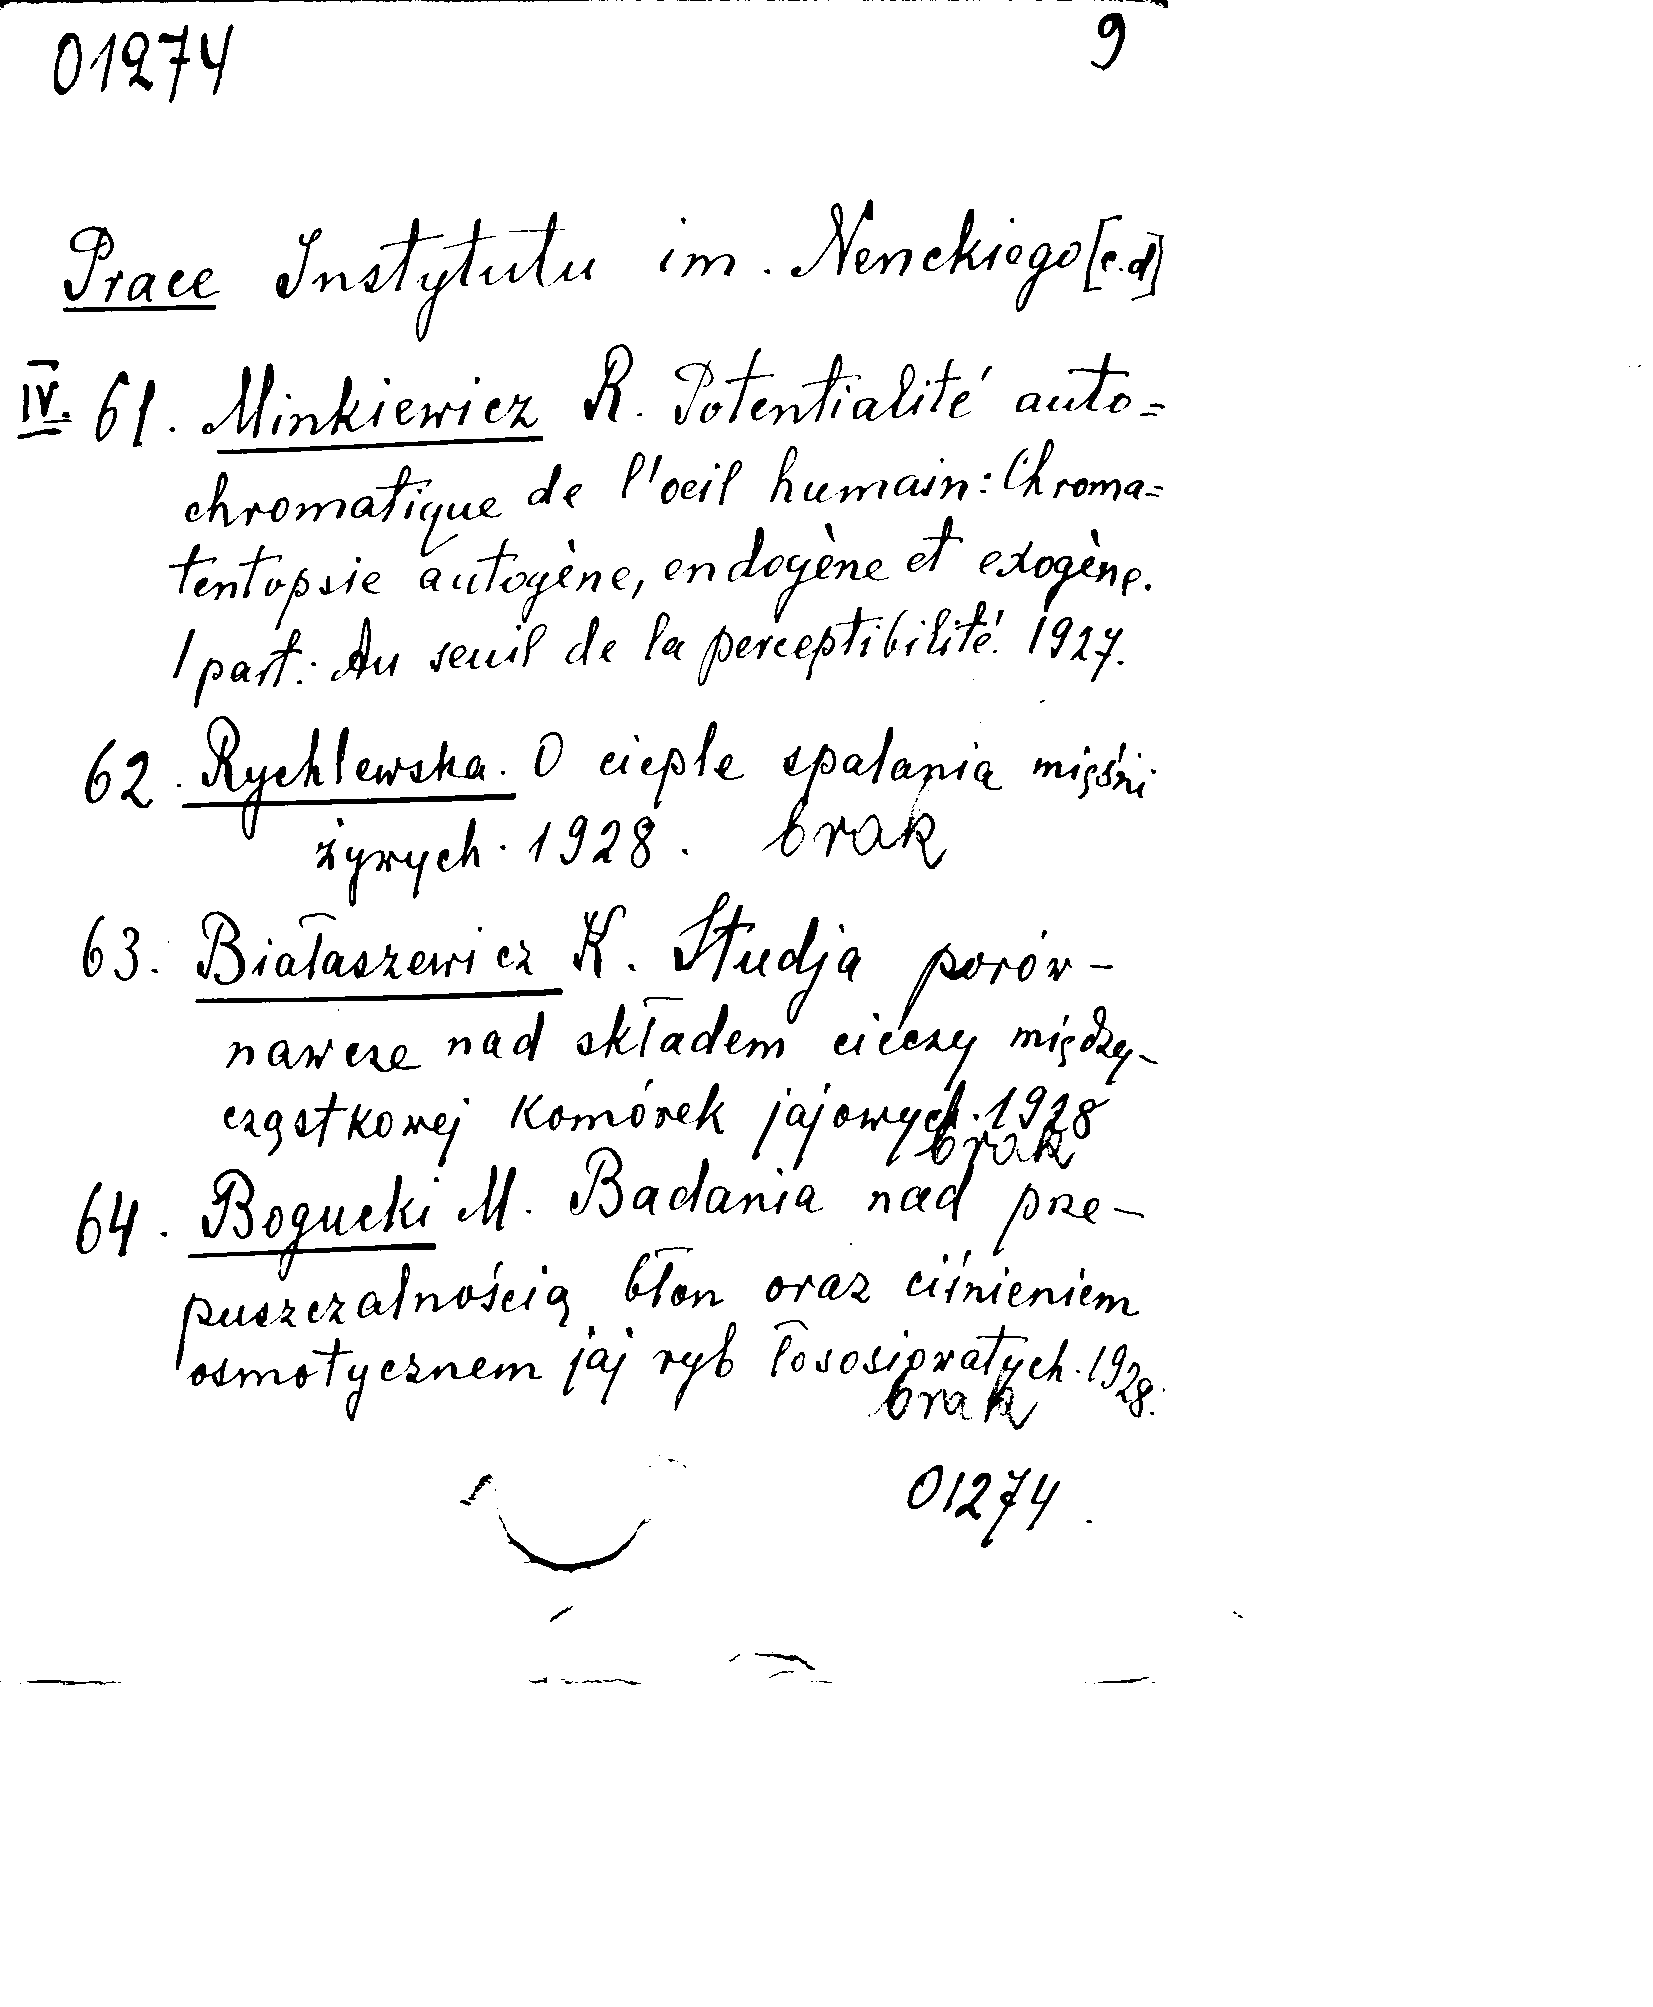 01274 9
Prace Instytutu im. Nenckiego [c.d]
IV. 61. Minkiewicz R. Potentialité auto=
chromatique de l'oeil humain: Chroma=
tentopsie autogène, endogène et exogène.
1 part.: Au seuil de la perceptibilité. 1927.
62. Rychlewska. O cieple spalania mięśni
żywych. 1928. brak
63. Białaszewicz K. Studja porów-
nawcze nad składem cieczy między-
cząstkowej komórek jajowych. 1928
brak
64. Bogucki M. Badania nad prze-
puszczalnością błon oraz ciśnieniem
osmotycznem jaj ryb łososiowatych. 1928.
brak
01274